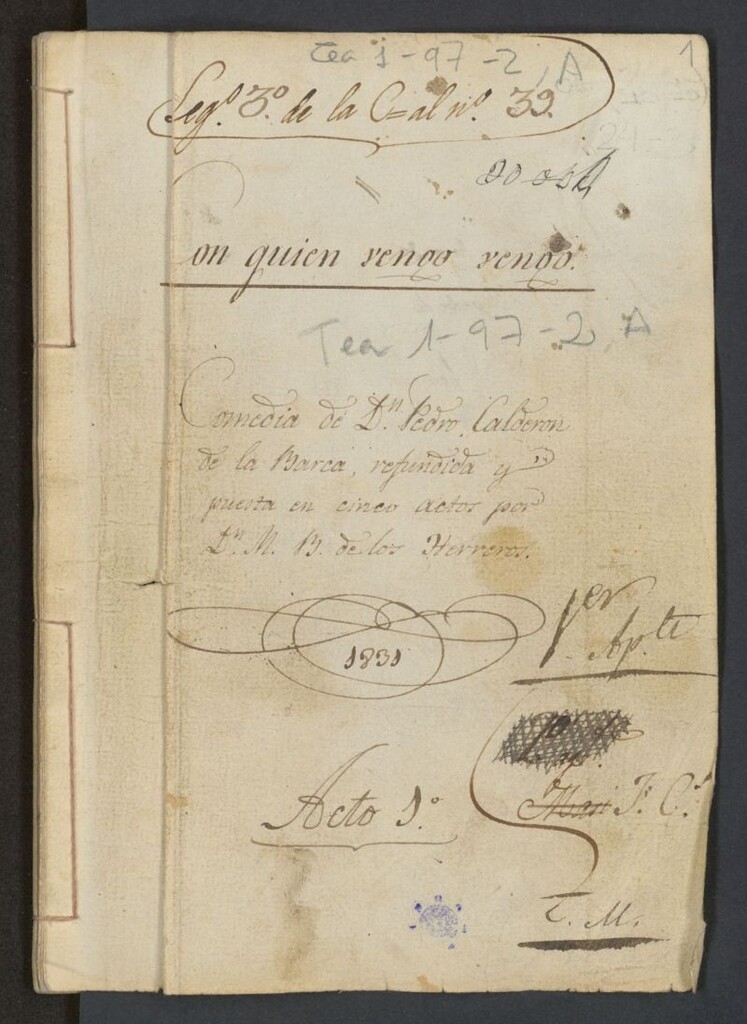 Tea 1-97-2, A
1
Leg.º 3.º de la C= al n.º 39.
Con quien vengo vengo.
Tea 1-97-2, A
Comedia de D.n Pedro Calderon
de la Barca, refundida y
puesta en cinco actos por
D.n M. B. de los Herreros.
1831
1.er
Ap.te
Acto 1.º
F. C.
T. M.